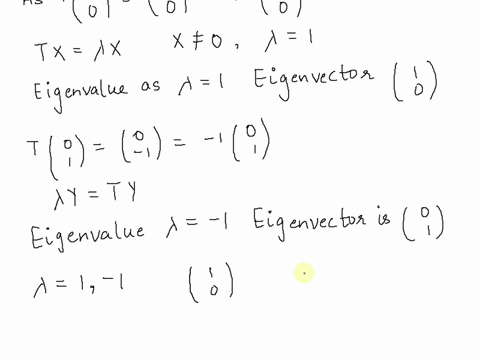 0) = ( 0 ) ( 0 )
TX = λX X ≠ 0 , λ = 1
Eigenvalue as λ = 1 Eigenvector (1 0)
T (0 1) = (0 -1) = -1 (0 1)
λY = TY
Eigenvalue λ = -1 Eigenvector is (0 1)
λ = 1, -1 (1 0)